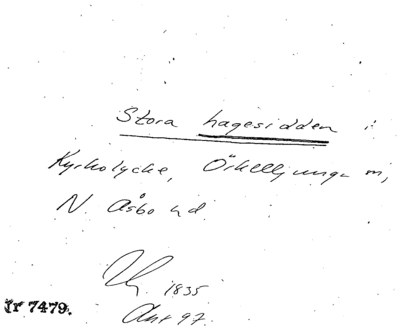 Stora hagesidden i
Kyrkolycke, Örkelljunga sn,
N. Åsbo hd.
1835
Ahr 97.
Ir 7479.